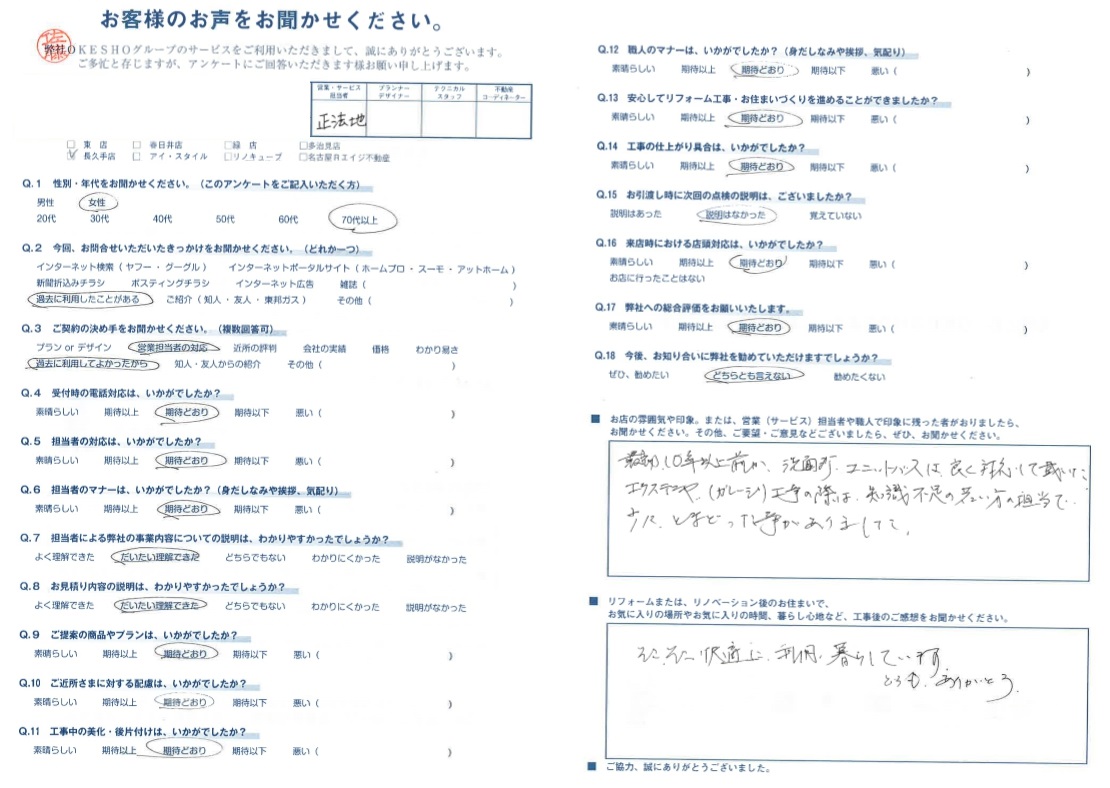 お客様のお声をお聞かせください。
佐藤
弊社OKESHOグループのサービスをご利用いただきまして、誠にありがとうございます。
ご多忙と存じますが、アンケートにご回答いただきます様お願い申し上げます。
営業・サービス担当者 プランナーデザイナー テクニカルスタッフ 不動産コーディネーター
正法地
□ 東 店 □ 春日井店 □緑 店 □多治見店
☑ 長久手店 □ アイ・スタイル □リノキューブ □名古屋日エイジ不動産
Q.1 性別・年代をお聞かせください。(このアンケートをご記入いただく方)
男性 女性
20代 30代 40代 50代 60代 70代以上
Q.2 今回、お問合せいただいたきっかけをお聞かせください。(どれか一つ)
インターネット検索(ヤフー・グーグル) インターネットポータルサイト(ホームプロ・スーモ・アットホーム)
新聞折込みチラシ ポスティングチラシ インターネット広告 雑誌( )
過去に利用したことがある ご紹介(知人・友人・東邦ガス) その他( )
Q.3 ご契約の決め手をお聞かせください。(複数回答可)
プラン or デザイン 営業担当者の対応 近所の評判 会社の実績 価格 わかり易さ
過去に利用してよかったから 知人・友人からの紹介 その他( )
Q.4 受付時の電話対応は、いかがでしたか?
素晴らしい 期待以上 期待どおり 期待以下 悪い( )
Q.5 担当者の対応は、いかがでしたか?
素晴らしい 期待以上 期待どおり 期待以下 悪い( )
Q.6 担当者のマナーは、いかがでしたか?(身だしなみや挨拶、気配り)
素晴らしい 期待以上 期待どおり 期待以下 悪い( )
Q.7 担当者による弊社の事業内容についての説明は、わかりやすかったでしょうか?
よく理解できた だいたい理解できた どちらでもない わかりにくかった 説明がなかった
Q.8 お見積り内容の説明は、わかりやすかったでしょうか?
よく理解できた だいたい理解できた どちらでもない わかりにくかった 説明がなかった
Q.9 ご提案の商品やプランは、いかがでしたか?
素晴らしい 期待以上 期待どおり 期待以下 悪い( )
Q.10 ご近所さまに対する配慮は、いかがでしたか?
素晴らしい 期待以上 期待どおり 期待以下 悪い( )
Q.11 工事中の美化・後片付けは、いかがでしたか?
素晴らしい 期待以上 期待どおり 期待以下 悪い( )
Q.12 職人のマナーは、いかがでしたか?(身だしなみや挨拶、気配り)
素晴らしい 期待以上 期待どおり 期待以下 悪い( )
Q.13 安心してリフォーム工事・お住まいづくりを進めることができましたか?
素晴らしい 期待以上 期待どおり 期待以下 悪い( )
Q.14 工事の仕上がり具合は、いかがでしたか?
素晴らしい 期待以上 期待どおり 期待以下 悪い( )
Q.15 お引渡し時に次回の点検の説明は、ございましたか?
説明はあった 説明はなかった 覚えていない
Q.16 来店時における店頭対応は、いかがでしたか?
素晴らしい 期待以上 期待どおり 期待以下 悪い( )
お店に行ったことはない
Q.17 弊社への総合評価をお願いいたします。
素晴らしい 期待以上 期待どおり 期待以下 悪い( )
Q.18 今後、お知り合いに弊社を勧めていただけますでしょうか?
ぜひ、勧めたい どちらとも言えない 勧めたくない
■ お店の雰囲気や印象。または、営業(サービス)担当者や職人で印象に残った者がおりましたら、
お聞かせください。その他、ご要望・ご意見などございましたら、ぜひ、お聞かせください。
最初10年以上前か、洗面所、ユニットバスは良く対応して戴いた
エクステリヤ、(ガレージ)工事の際は、知識不足の若い方の担当で
少々、とまどった事がありました。
■ リフォームまたは、リノベーション後のお住まいで、
お気に入りの場所やお気に入りの時間、暮らし心地など、工事後のご感想をお聞かせください。
そこそこ快適に、利用、暮らしています。
とても、ありがとう。
■ ご協力、誠にありがとうございました。